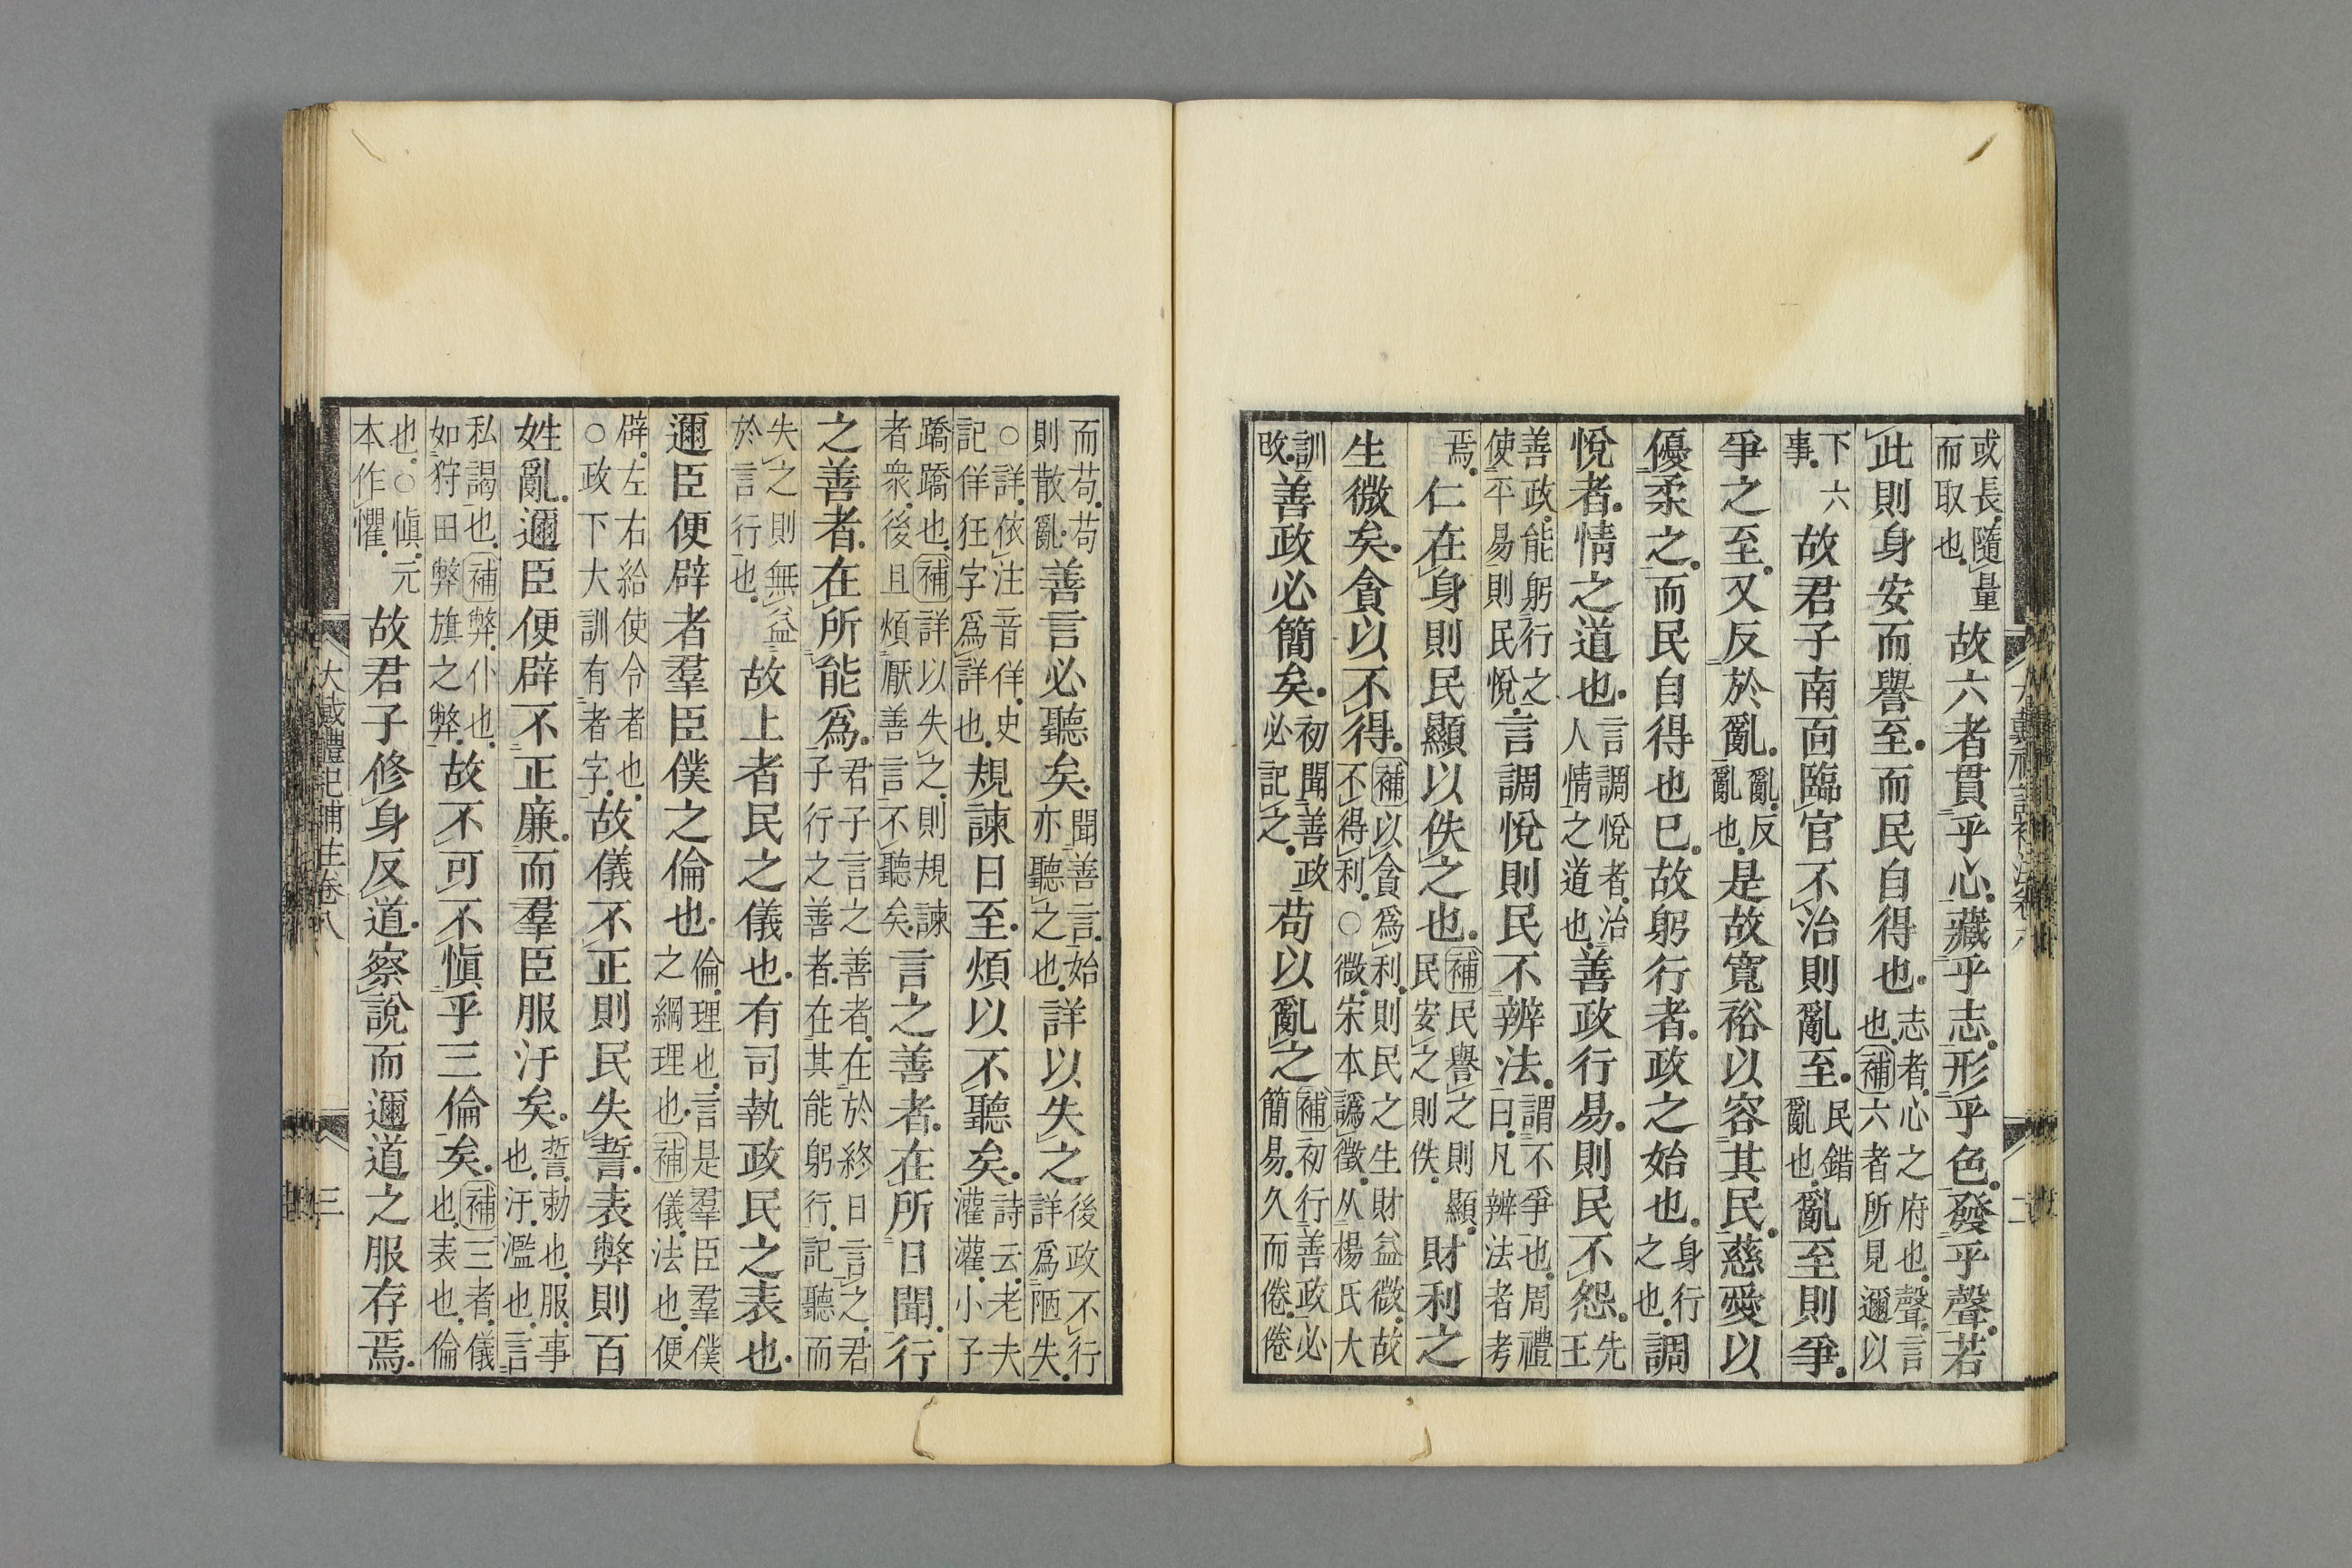 或長隨量
而取也
故六者貫乎心藏乎志形乎色發乎聲若
此則身安而譽至而民自得也
志者心之府也聲言
也補六者所見邇以
下六
事
故君子南面臨官不治則亂至
民錯
亂也
亂至則爭
爭之至又反於亂
亂反
亂也
是故寬裕以容其民慈愛以
優柔之而民自得也已故躬行者政之始也
身行
之也
調
悅者情之道也
言調悅者治
人情之道也
善政行易則民不怨
先
王
善政能躬行之
使平易則民悅
言調悅則民不辨法
謂不爭也周禮
曰凡辨法者考
焉
仁在身則民顯以佚之也
補民譽之則顯
民安之則佚
財利之
生微矣貪以不得
補以貪爲利則民之生財益微故
不得利○微宋本譌徵从楊氏大
訓
改
善政必簡矣
初聞善政
必記之
苟以亂之
補初行善政必
簡易久而倦倦
而苟苟
則散亂
善言必聽矣
聞善言始
亦聽之也
詳以失之
後政不行
詳爲陋失
○詳依注音佯史
記佯狂字爲詳也
規諫日至煩以不聽矣
詩云老夫
灌灌小子
蹻蹻也補詳以失之則規諫
者衆後且煩厭善言不聽矣
言之善者在所日聞行
之善者在所能爲
君子言之善者在於終日言之君
子行之善者在其能躬行記聽而
失之則無益
於言行也
故上者民之儀也有司執政民之表也
邇臣便辟者羣臣僕之倫也
倫理也言是羣臣羣僕
之綱理也補儀法也便
辟左右給使令者也
○政下大訓有者字
故儀不正則民失誓表弊則百
姓亂邇臣便辟不正廉而羣臣服汙矣
誓勅也服事
也汙濫也言
私謁也補弊仆也
如狩田弊旗之弊
故不可不愼乎三倫矣
補三者儀
也表也倫
也○愼元
本作懼
故君子修身反道察說而邇道之服存焉
大戴禮記補注卷八
三